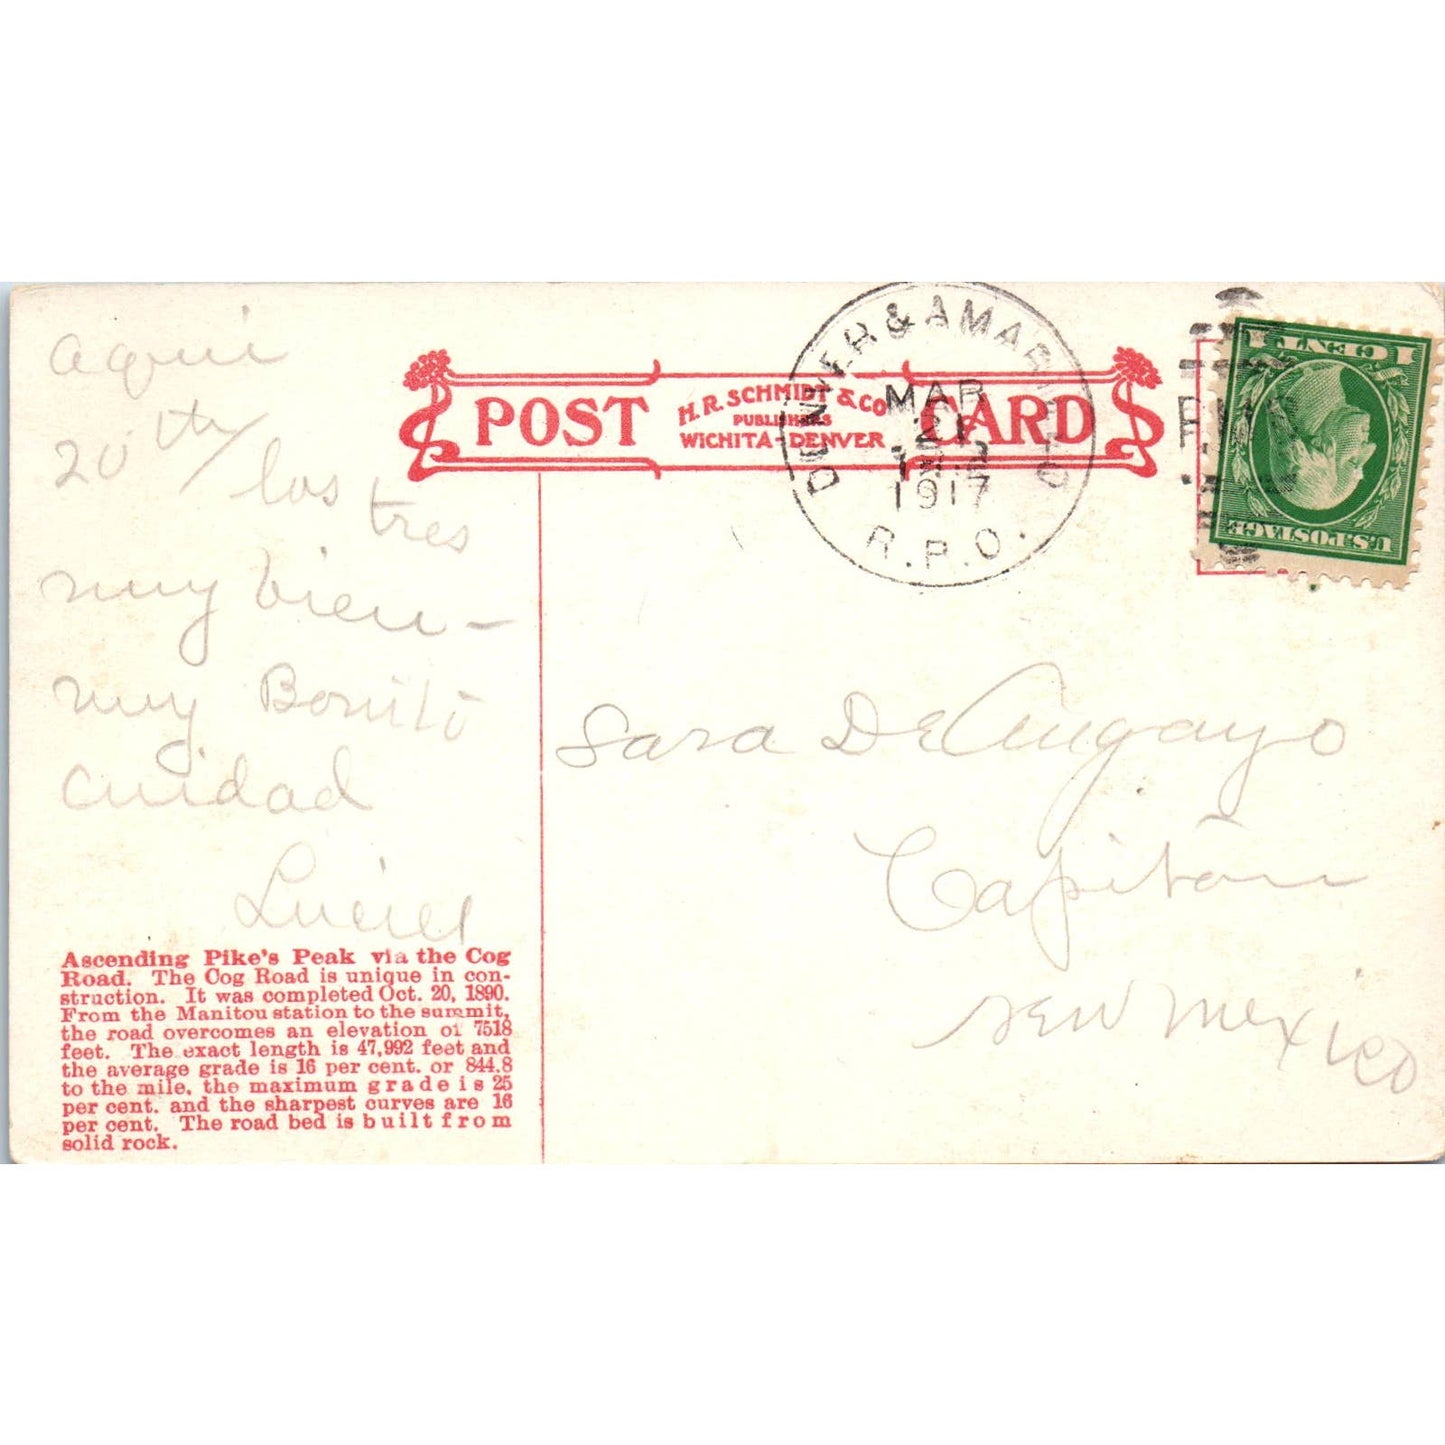 aqui
20th/ los tres
muy bien –
muy Bonito
cuidad
POST CARD
H. R. SCHMIDT & CO
PUBLISHERS
WICHITA - DENVER
DENVER & AMARILLO
MAR
21
1917
R.P.O.
R.M.S
1 CENT 1
U.S. POSTAGE
Sara De Anayo
Capitan
New Mexico
Ascending Pike's Peak via the Cog
Road. The Cog Road is unique in con-
struction. It was completed Oct. 20, 1890.
From the Manitou station to the summit,
the road overcomes an elevation of 7518
feet. The exact length is 47,992 feet and
the average grade is 16 per cent. or 844.8
to the mile, the maximum grade is 25
per cent. and the sharpest curves are 16
per cent. The road bed is built from
solid rock.